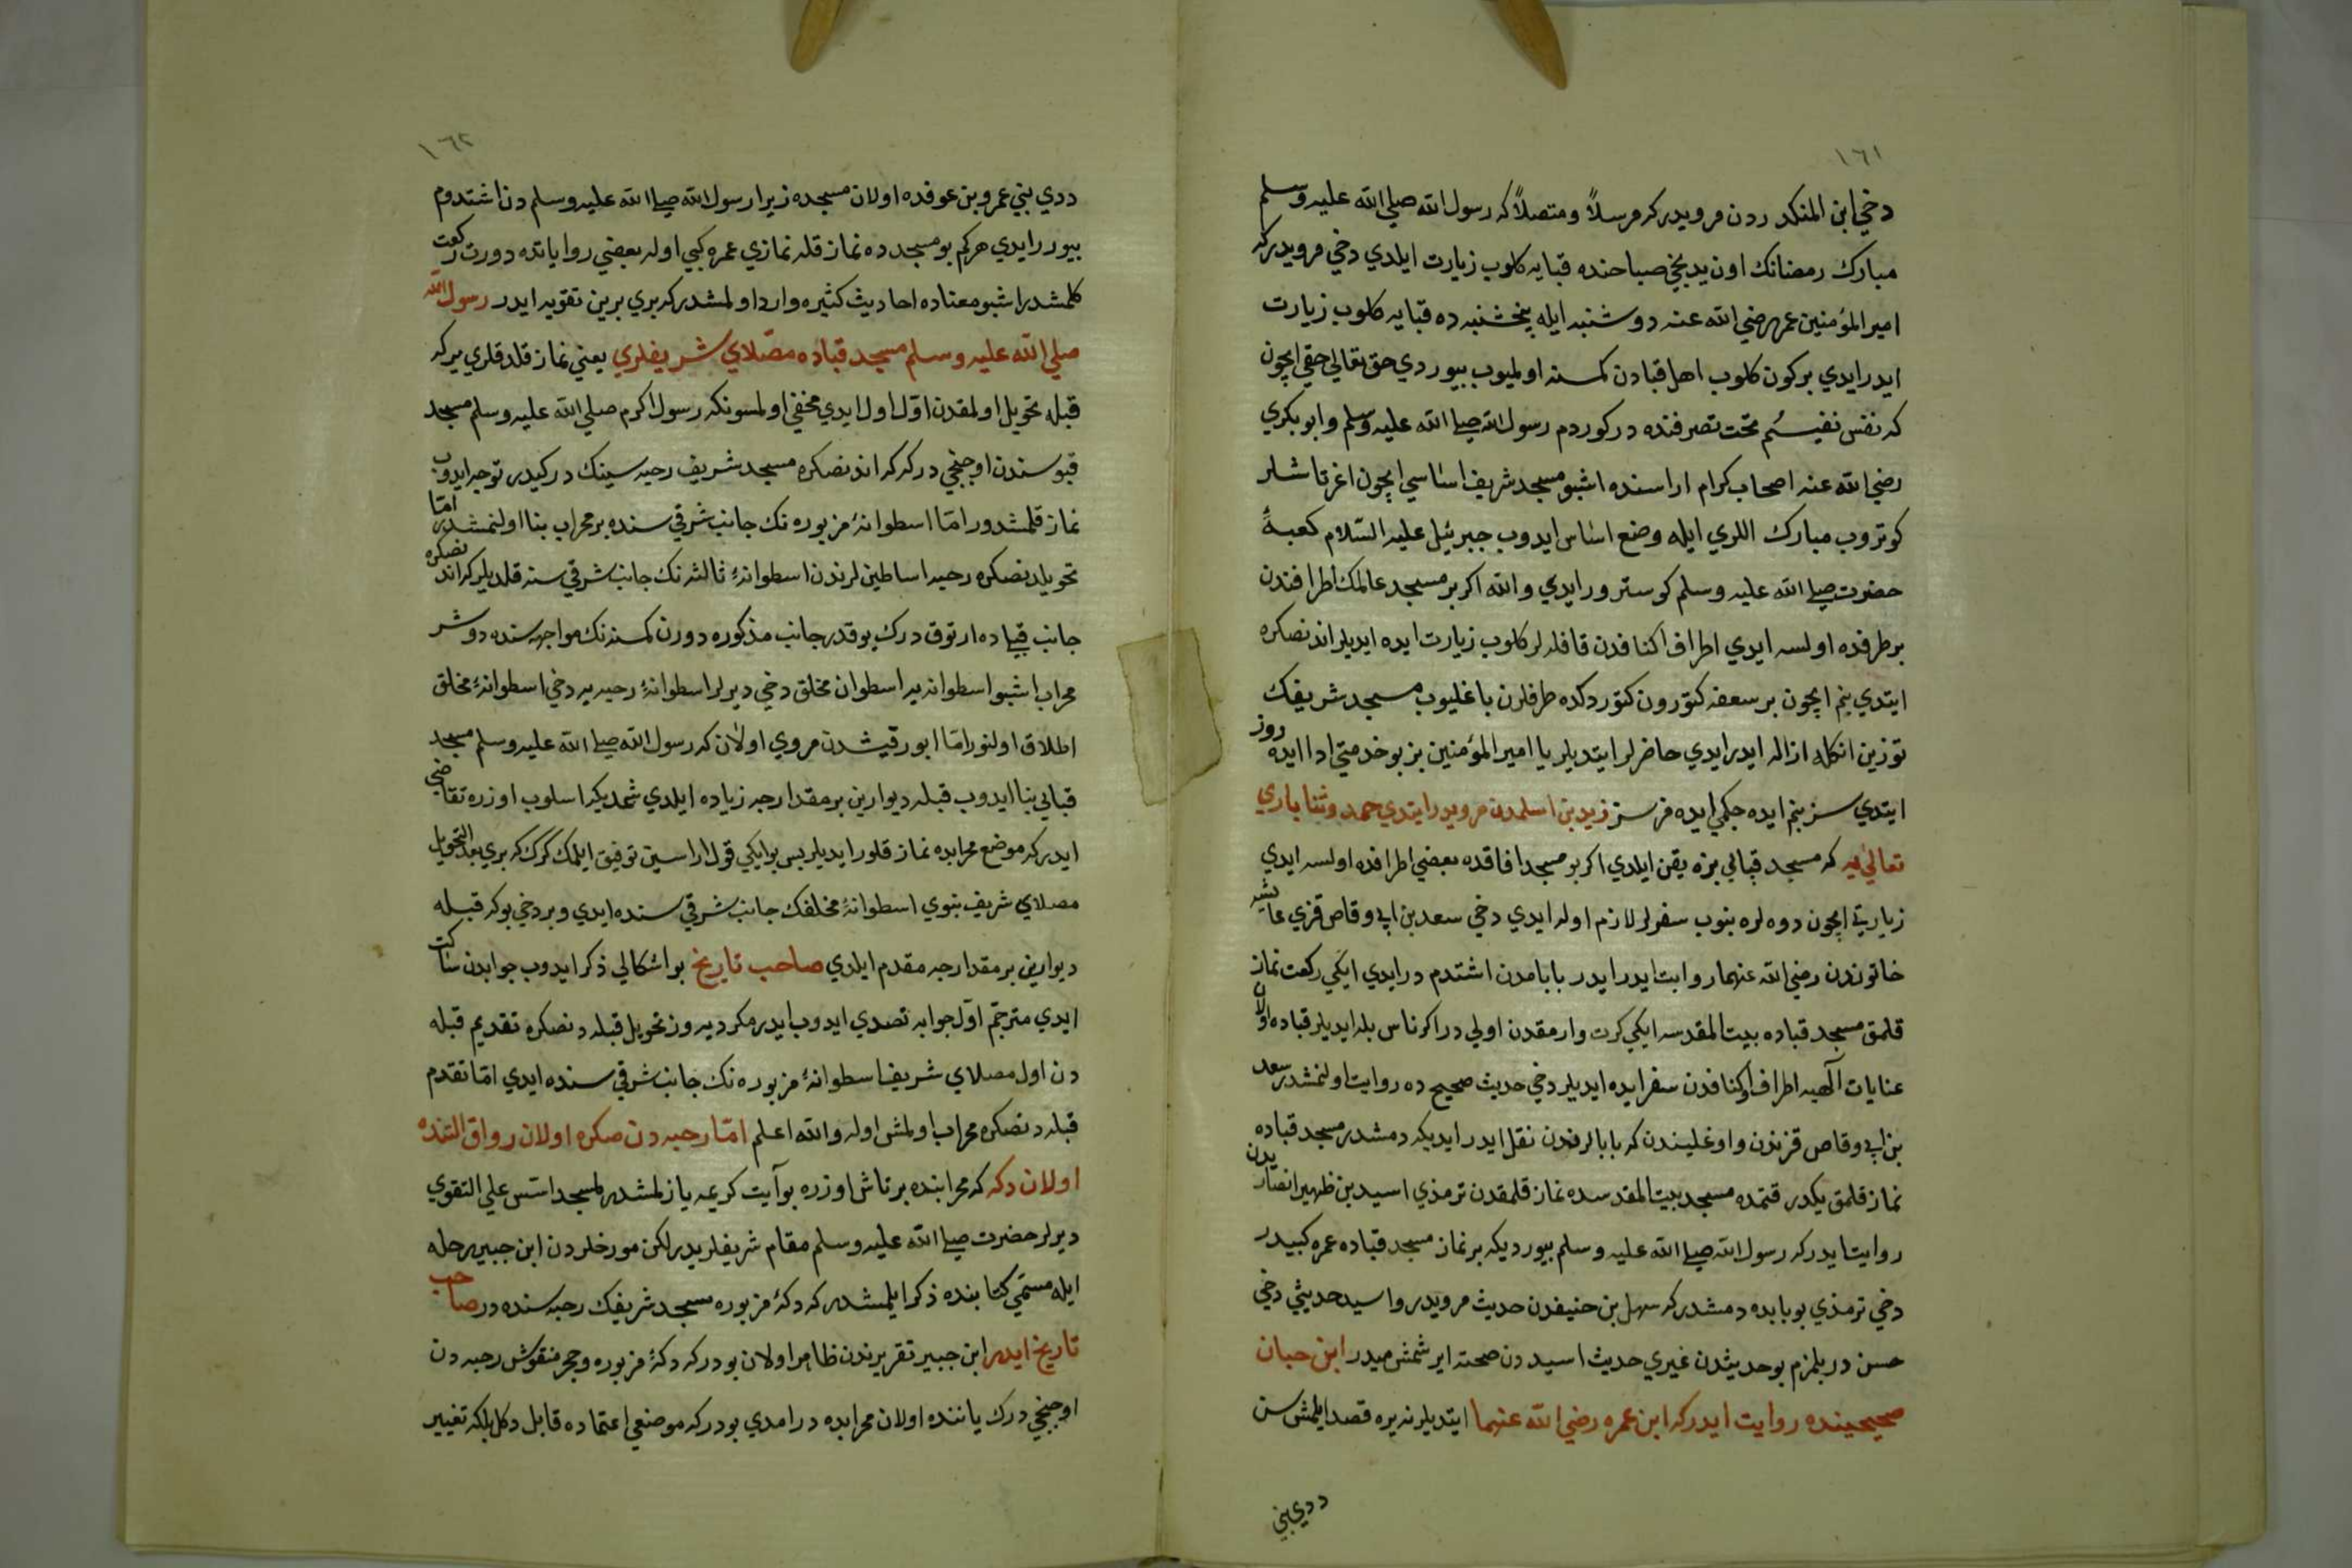 ١٦١
دخي ابن المنكدردن مرويدركه مرسلاً ومتصلاً كه رسول الله صلى الله عليه وسلم
مبارك رمضانك اون يدنجي صباحنده قبايه كلوب زيارت ايلدي دخي مرويدركه
امير المؤمنين عمر رضي الله عنه دوشنبه ايله پنجشنبه ده قبايه كلوب زيارت
ايدر ايدي بركون كلوب اهل قبادن كمسنه اولميوب بيوردي حق تعالى حقيچون
كه نفس نفيسُم تحت تصرفنده در كوردم رسول الله صلى الله عليه وسلم وابو بكري
رضي الله عنه اصحاب كرام اراسنده اشبو مسجد شريف اساسي ايچون اغر تاشلر
كوتروب مبارك اللري ايله وضع اساس ايدوب جبرئيل عليه السّلام كعبهٔ
حضرت صلى الله عليه وسلم كوسترور ايدي والله اكر بر مسجد عالمك اطرافندن
بر طرفده اولسه ايدي اطراف اكنافدن قافله لر كلوب زيارت ايده ايديلر اندنصكره
ايتدي بنم ايچون بر سعفه كتورون كتوردكده طرفلرن باغليوب مسجد شريفك
توزين انكله ازاله ايدر ايدي حاضرلر ايتديلر يا امير المؤمنين بز بو خدمتي ادا ايده روز
ايتدي سز بنم ايده جكمي ايده مرسز زيد بن اسلمدن مرويدر ايتدي حمد وثنا باري
تعالى يه كه مسجد قبايي بزه يقن ايلدي اكر بو مسجد افاقده بعضي اطرافده اولسه ايدي
زيارتي ايچون دوه لره بنوب سفرلر لازم اوله ايدي دخي سعد بن ابي وقاص قزي عايشه
خاتوندن رضي الله عنهما روايت ايدر ايدر بابامدن اشتدم در ايدي ايكي ركعت نماز
قلمق مسجد قباده بيت المقدسه ايكي كرت وارمقدن اولي در اكر ناس بله ايديلر قباده اولان
عنايات آلهيه اطراف واكنافدن سفر ايده ايديلر دخي حديث صحيح ده روايت اولنمشدر سعد
بن ابي وقاص قزندن واوغليندن كه بابالرندن نقل ايدر ايديكه دمشدر مسجد قباده
نماز قلمق يكدر قتمده مسجد بيت المقدسده نماز قلمقدن ترمذي اسيد بن ظهير انصاريدن
روايت ايدركه رسول الله صلى الله عليه وسلم بيورديكه بر نماز مسجد قباده عمره كبيدر
دخي ترمذي بو بابده دمشدركه سهل بن حنيفدن حديث مرويدر واسيد حديثي دخي
حسن در بلمزم بو حديثدن غيري حديث اسيددن صحته ايرشمش ميدر ابن حبان
صحيحينده روايت ايدركه ابن عمره رضي الله عنهما ايتديلر نه يره قصد ايلمش سن
ددي بني
١٦٢
ددي بني عمرو بن عوفده اولان مسجده زيرا رسول الله صلى الله عليه وسلم دن اشتدم
بيورر ايدي هركم بو مسجدده نماز قله نمازي عمره كبي اوله بعضي رواياتده دورت ركعت
كلمشدر اشبو معناده احاديث كثيره وارد اولمشدركه بري برين تقويه ايدر رسول الله
صلى الله عليه وسلم مسجد قباده مصّلاي شريفلري يعني نماز قلدقلري يركه
قبله تحويل اولمقدن اوّل اول ايدي مخفي اولمسونكه رسول اكرم صلى الله عليه وسلم مسجد
قپوسندن اوچنجي دركه كه اندنصكره مسجد شريف رحبه سينك دركيدر توجه ايدوب
نماز قلمشدور امّا اسطوانهٔ مزبوره نك جانب شرقي سنده بر محراب بنا اولنمشدر امّا
تحويلدنصكره رحبه اساطين لرندن اسطوانهٔ ثالثه نك جانب شرقي سنه قلديلركه اندنصكره
جانب قبله ده ارتوق درك يوقدر جانب مذكوره دورن كمسنه نك مواجهه سنده دوشر
محراب اشبو اسطوانه يه اسطوان مخلق دخي ديرلر اسطوانهٔ رحبه يه دخي اسطوانهٔ مخلق
اطلاق اولنور امّا ابو رقيشدن مروي اولان كه رسول الله صلى الله عليه وسلم مسجد
قبايي بنا ايدوب قبله ديوارين بر مقدارجه زياده ايلدي شمديكه اسلوب اوزره تقاضي
ايدركه موضع محرابده نماز قلور ايديلر پس بو ايكي قول اراسين توفيق ايلمك كرك كه بري بعد التحويل
مصلاي شريف نبوي اسطوانهٔ مخلقك جانب شرقي سنده ايدي وبر دخي بوكه قبله
ديوارين بر مقدارجه مقدم ايلدي صاحب تاريخ بو اشكالي ذكر ايدوب جوابدن ساكت
ايدي مترجم آول جوابه تصدي ايدوب ايدر مكر ديه وز تحويل قبله دنصكره تقديم قبله
دن اول مصلاي شريف اسطوانهٔ مزبوره نك جانب شرقي سنده ايدي امّا تقدم
قبله دنصكره محراب اولمش اوله والله اعلم امّا رحبه دن صكره اولان رواق التنده
اولان دكه كه محرابنده بر تاش اوزره بو آيت كريمه يازلمشدر لمسجد اسّس على التقوي
ديرلر حضرت صلى الله عليه وسلم مقام شريفلريدر لكن مورخلردن ابن جبير رحله
ايله مسمّي كتابنده ذكر ايلمشدركه دكهٔ مزبوره مسجد شريفك رحبه سنده در صاحب
تاريخ ايدر ابن جبير تقريرندن ظاهر اولان بودركه دكهٔ مزبوره وحجر منقوش رحبه دن
اوچنجي درك ياننده اولان محرابده در امدي بودركه موضعي اعتماده قابل دكل بلكه تغيير